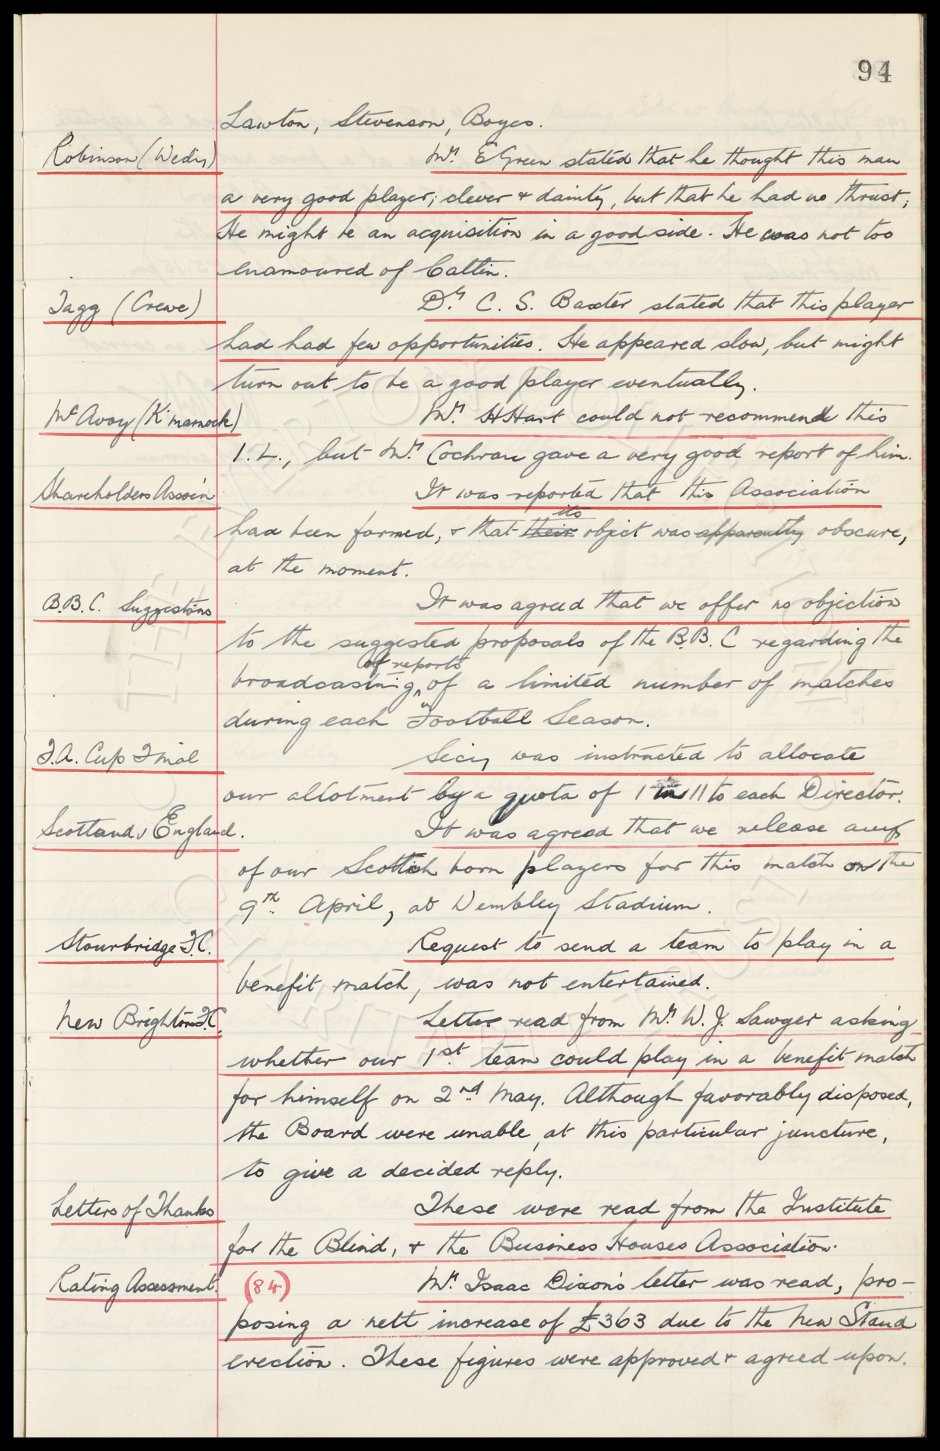 94
Lawton, Stevenson, Boyes.
Robinson (Wedn'y) Mr. E Green stated that he thought this man
a very good player; clever & dainty, but that he had no thrust;
He might be an acquisition in a good side. He was not too
enamoured of Catlin.
Tagg (Crewe) Dr. C. S. Baxter stated that this player
had had few opportunities. He appeared slow, but might
turn out to be a good player eventually.
McAvoy (K'marnock) Mr. H Hart could not recommend this
I.L., but Mr. Cochrane gave a very good report of him.
Shareholders Assoc'n It was reported that this Association
its
had been formed, & that their object was apparently obscure,
at the moment.
B.B.C. Suggestions It was agreed that we offer no objection
to the suggested proposals of the B.B.C regarding the
of reports
broadcasing, of a limited number of matches
during each Football Season.
F.A. Cup Final Secy was instructed to allocate
our allotment by a quota of 1 in 11 to each Director.
Scotland v England. It was agreed that we release any
of our Scottich born players for this match on the
9th April, at Wembley Stadium.
Stourbridge F.C. Request to send a team to play in a
benefit match, was not entertained.
New Brighton F.C. Letter read from Mr. W. J. Sawyer asking
whether our 1st team could play in a benefit match
for himself on 2nd May. Although favorably disposed,
the Board were unable, at this particular juncture,
to give a decided reply.
Letters of Thanks These were read from the Institute
for the Blind, & the Business Houses Association.
Rating Assessment. (84) Mr. Isaac Dixon's letter was read, pro-
posing a nett increase of £363 due to the New Stand
erection. These figures were approved & agreed upon.